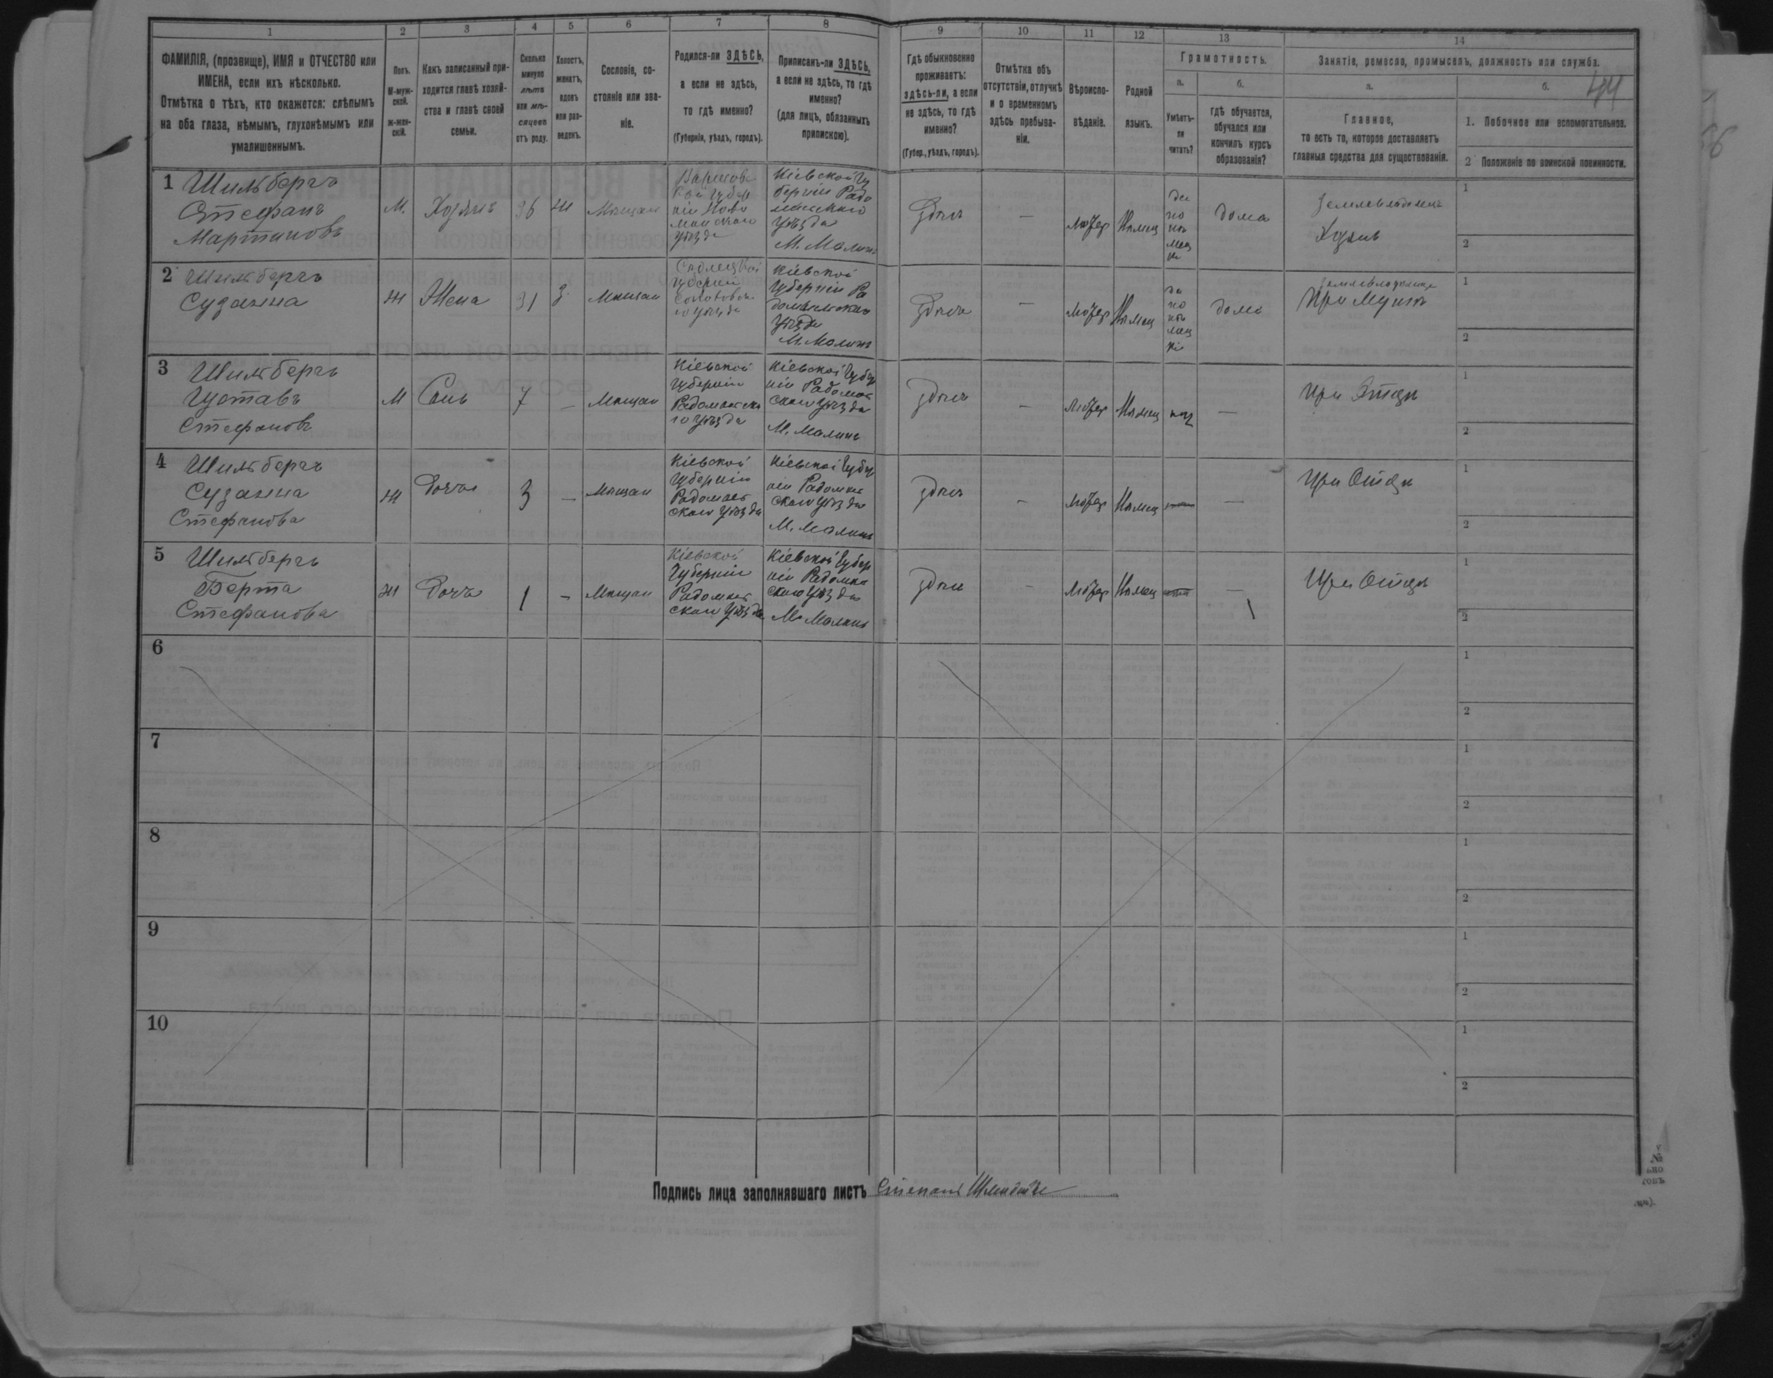 1 2 3 4 5 6 7 8 9 10 11 12 13 14
ФАМИЛІЯ, (прозвище), ИМЯ и ОТЧЕСТВО или
ИМЕНА, если ихъ нѣсколько.
Отмѣтка о тѣхъ, кто окажется: слѣпымъ
на оба глаза, нѣмымъ, глухонѣмымъ или
умалишеннымъ.
Полъ.
М-муж-
ской.
Ж-жен-
скій.
Какъ записанный при-
ходится главѣ хозяй-
ства и главѣ своей
семьи.
Сколько
минуло
лѣтъ
или мѣ-
сяцевъ
отъ роду.
Холостъ,
женатъ,
вдовъ
или раз-
веденъ.
Сословіе, со-
стояніе или зва-
ніе.
Родился-ли ЗДѢСЬ,
а если не здѣсь,
то гдѣ именно?
(Губернія, уѣздъ, городъ).
Приписанъ-ли ЗДѢСЬ,
а если не здѣсь, то гдѣ
именно?
(для лицъ, обязанныхъ
припискою).
Гдѣ обыкновенно
проживаетъ:
здѣсь-ли, а если
не здѣсь, то гдѣ
именно?
(Губер., уѣздъ, городъ).
Отмѣтка объ
отсутствіи, отлучкѣ
и о временномъ
здѣсь пребыва-
ніи.
Вѣроиспо-
вѣданіе.
Родной
языкъ.
Грамотность.
а.
Умѣетъ-
ли
читать?
б.
гдѣ обучается,
обучался или
кончилъ курсъ
образованія?
Занятіе, ремесло, промыселъ, должность или служба.
а.
Главное,
то есть то, которое доставляетъ
главныя средства для существованія.
б.
44
1. Побочное или вспомогательное.
2 Положеніе по воинской повинности.
1 Шильбергъ
Стефанъ
Мартиновъ
М. Хозяинъ 36 Ж Мещан
Кіевской Гу
берніи Радо
мысльскаго
Уѣзда
М. Малинъ
Здѣсь — Лютер Немец
Дома
Землевладелец
Хозяинъ
1
2
2 Шильбергъ
Сузанна
Ж Жена 31 З Мещан
Кіевской
Губерніи Ра
домысльскаго
Уѣзда
М. Малинъ
Здѣсь — Лютер Немец
дома
При Мужѣ
1
2
3 Шильбергъ
Густавъ
Стефановъ
М Сынъ 7 — Мещан
Кіевской
Губерніи
Кіевской Губер
ніи Радомыс
скаго Уѣзда
М. Малинъ
Здѣсь — Лютер Немец —
При Отцѣ
1
2
4 Шильбергъ
Сузанна
Стефанова
Ж Дочь 3 — Мещан
Кіевской
Губерніи
Радомыс
скаго Уѣзда
Кіевской Губер
ніи Радомыс
скаго Уѣзда
М. Малинъ
Здѣсь — Лютер Немец —
При Отцѣ
1
2
5 Шильбергъ
Берта
Стефанова
Ж Дочь 1 — Мещан
Кіевской
Губерніи
Радомыс
скаго Уѣзда
Кіевской Губер
ніи Радомыс
скаго Уѣзда
М. Малинъ
Здѣсь — Лютер Немец —
При Отцѣ
1
2
6
1
2
7
1
2
8
1
2
9
1
2
10
1
2
Подпись лица заполнявшаго листъ